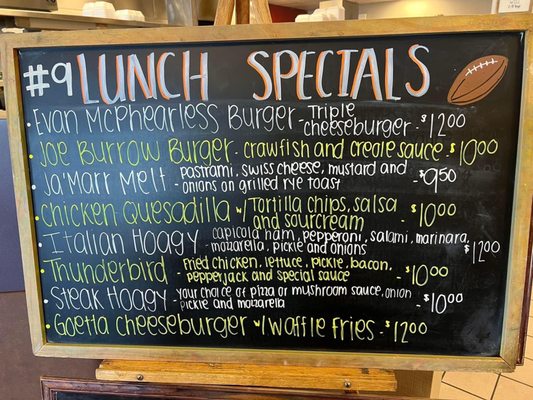 #9 LUNCH SPECIALS
Evan McPhearless Burger - Triple
cheeseburger - $12.00
Joe Burrow Burger - crawfish and creole sauce $10.00
Ja'Marr Melt - Pastrami, swiss cheese, mustard and
onions on grilled rye toast - $9.50
Chicken Quesadilla w/Tortilla chips, salsa
and sourcream - $10.00
Italian Hoagy - capicola ham, pepperoni, salami, marinara,
mozarella, pickle and onions - $12.00
Thunderbird - Fried chicken, lettuce, pickle, bacon,
pepperjack and special sauce - $10.00
Steak Hoagy - your choice of pizza or mushroom sauce, onion
pickle and mozarella - $10.00
Goetta Cheeseburger w/waffle fries - $12.00